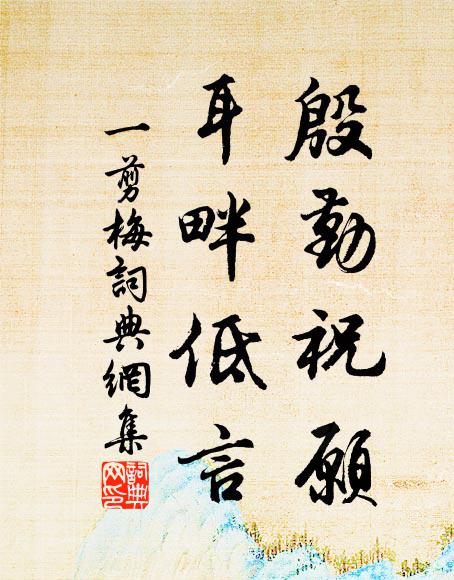 殷勤祝願
耳畔低言
一剪梅詞典網集
詞典
网印